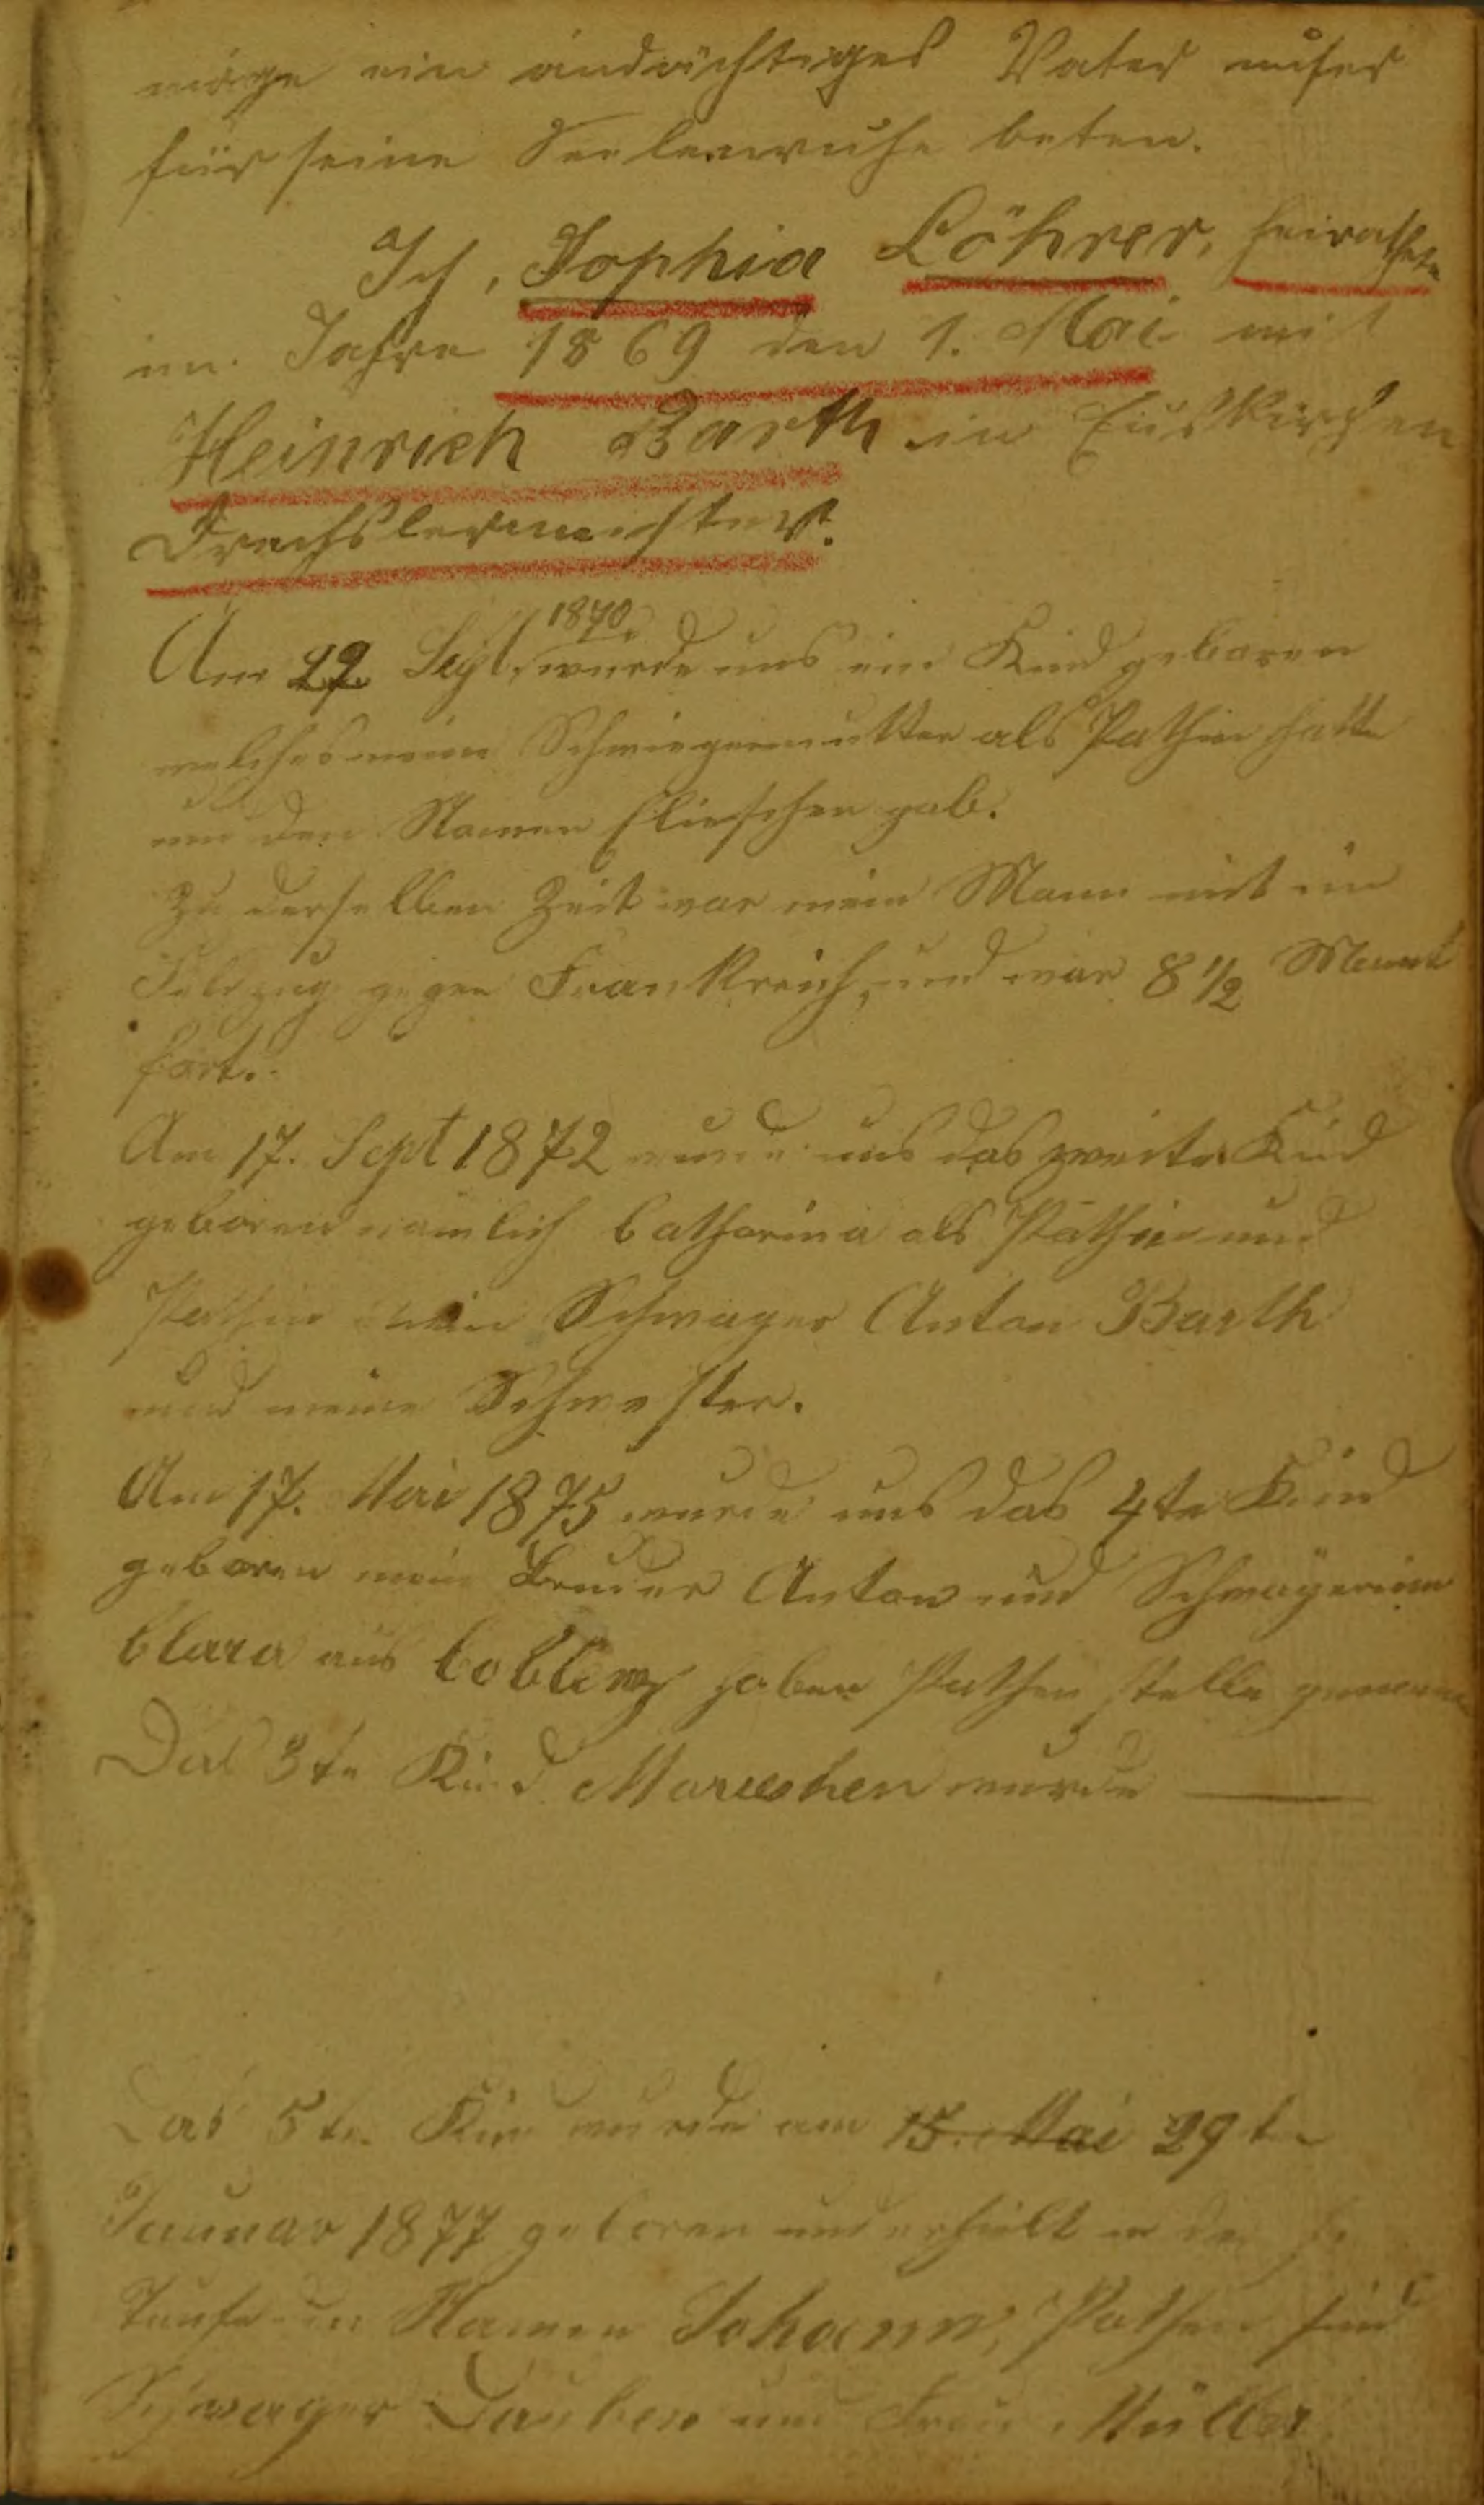 möge ein andächtiges Vater unser
für seine Seelenruhe beten.
Ich, Sophia Löhrer, heirathete
im Jahre 1869 den 1. Mai mit
Heinrich Barth in Euskirchen
Drechslermeister.
Am 29. Sept. 1870. wurde uns ein Kind geboren
welches meine Schwiegermutter als Pathin hatte
den Namen Elieschen gab.
Zu derselben Zeit war mein Mann mit im
Feldzug gegen Frankreich, und war 8 1/2 Monat
fort.
Am 17. Sept 1872 wurde uns das zweite Kind
geboren nämlich Catharina als Pathin und
Pathin mein Schwager Anton Barth
und meine Schwester.
Am 17. Mai 1875 wurde uns das 4te Kind
geboren mein Bruder Anton und Schwägerinn
Clara aus Coblenz haben Pathen stelle
Das 3te Kind Marieshen wurde —
Das 5te Kind wurde am 15. Mai 29te
Januar 1877 geboren und erhielt in der
Taufe den Namen Johann, Pathen sind
Schwager Dauben und Frau Müller